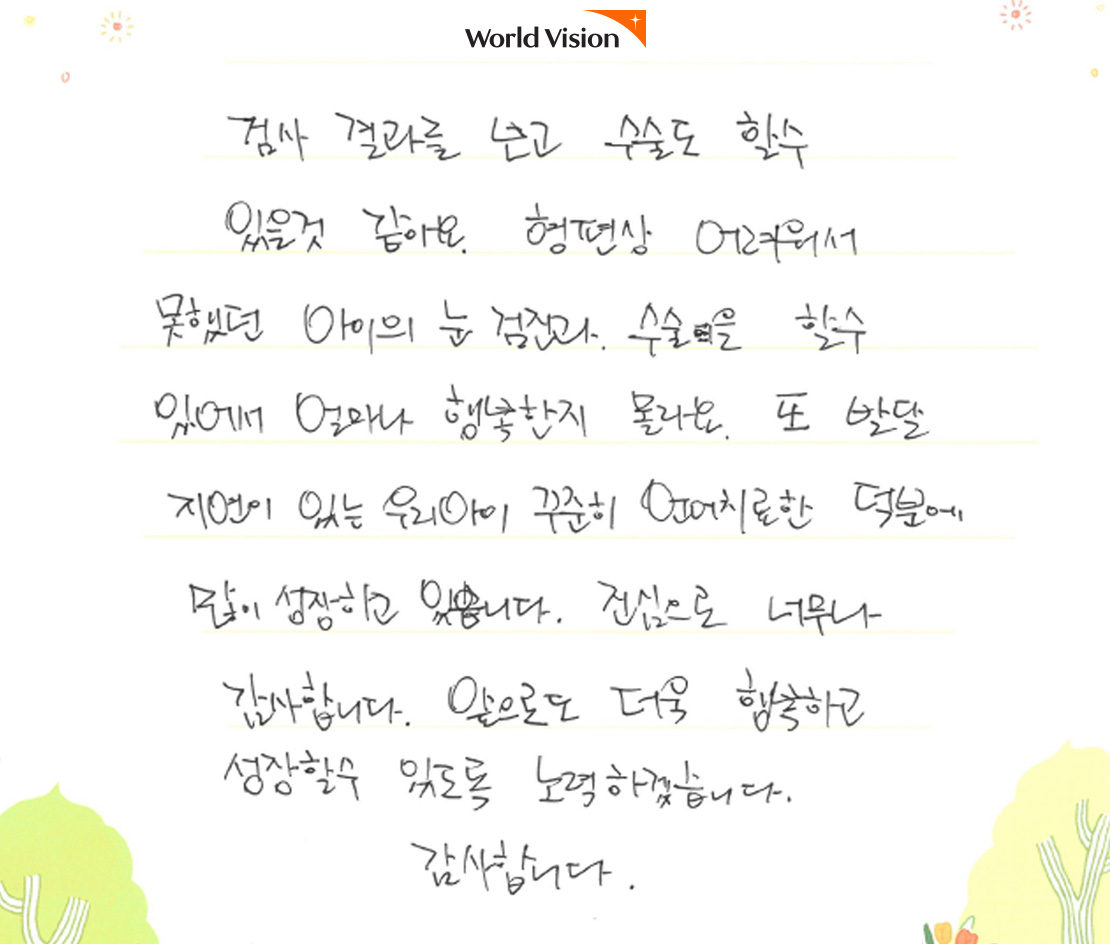 World Vision
검사 결과를 보고 수술도 할수
있을것 같아요. 형편상 어려워서
못했던 아이의 눈 검진과. 수술을 할수
있어서 얼마나 행복한지 몰라요. 또 발달
지연이 있는 우리아이 꾸준히 언어치료한 덕분에
많이 성장하고 있습니다. 진심으로 너무나
감사합니다. 앞으로도 더욱 행복하고
성장할수 있도록 노력하겠습니다.
감사합니다.